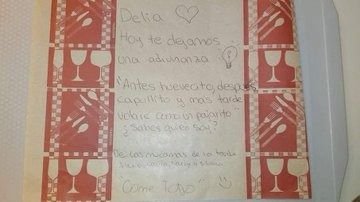 Delia
Hoy te dejamos
una adivinanza
"Antes huevecito, despues
capullito y mas tarde
volare como un pajarito"
¿Sabes quien soy?
De las mucamas de la tarde
Come Todo